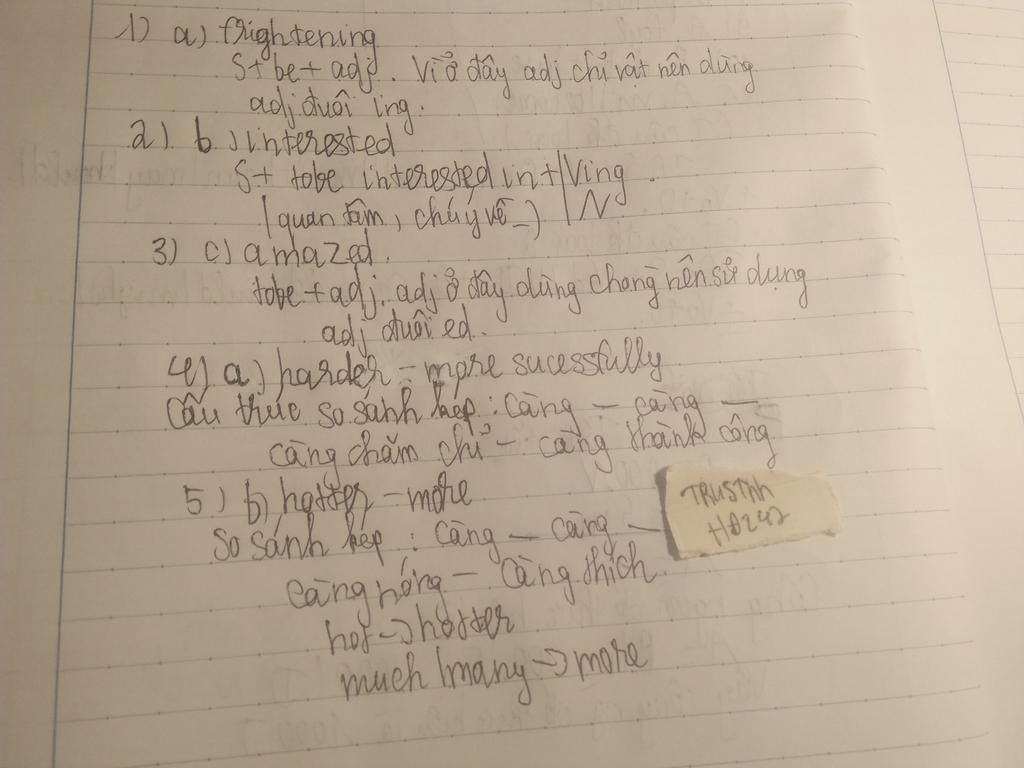 1) a) frightening
S + be + adj. Vì ở đây adj chỉ vật nên dùng
adj đuôi ing.
2) b) interested
S + tobe interested in + | Ving.
(quan tâm, chú ý về -) | N
3) c) amazed.
tobe + adj. adj ở đây dùng cho ng` nên sử dụng
adj đuôi ed.
4) a) harder - more sucessfully
Cấu thức so sánh kép : Càng — càng —
càng chăm chỉ - càng thành công
5) b) hotter - more
So sánh kép : Càng — càng —
TRUSTNh
HĐ247
càng nóng - càng thích
hot -> hotter
much / many -> more